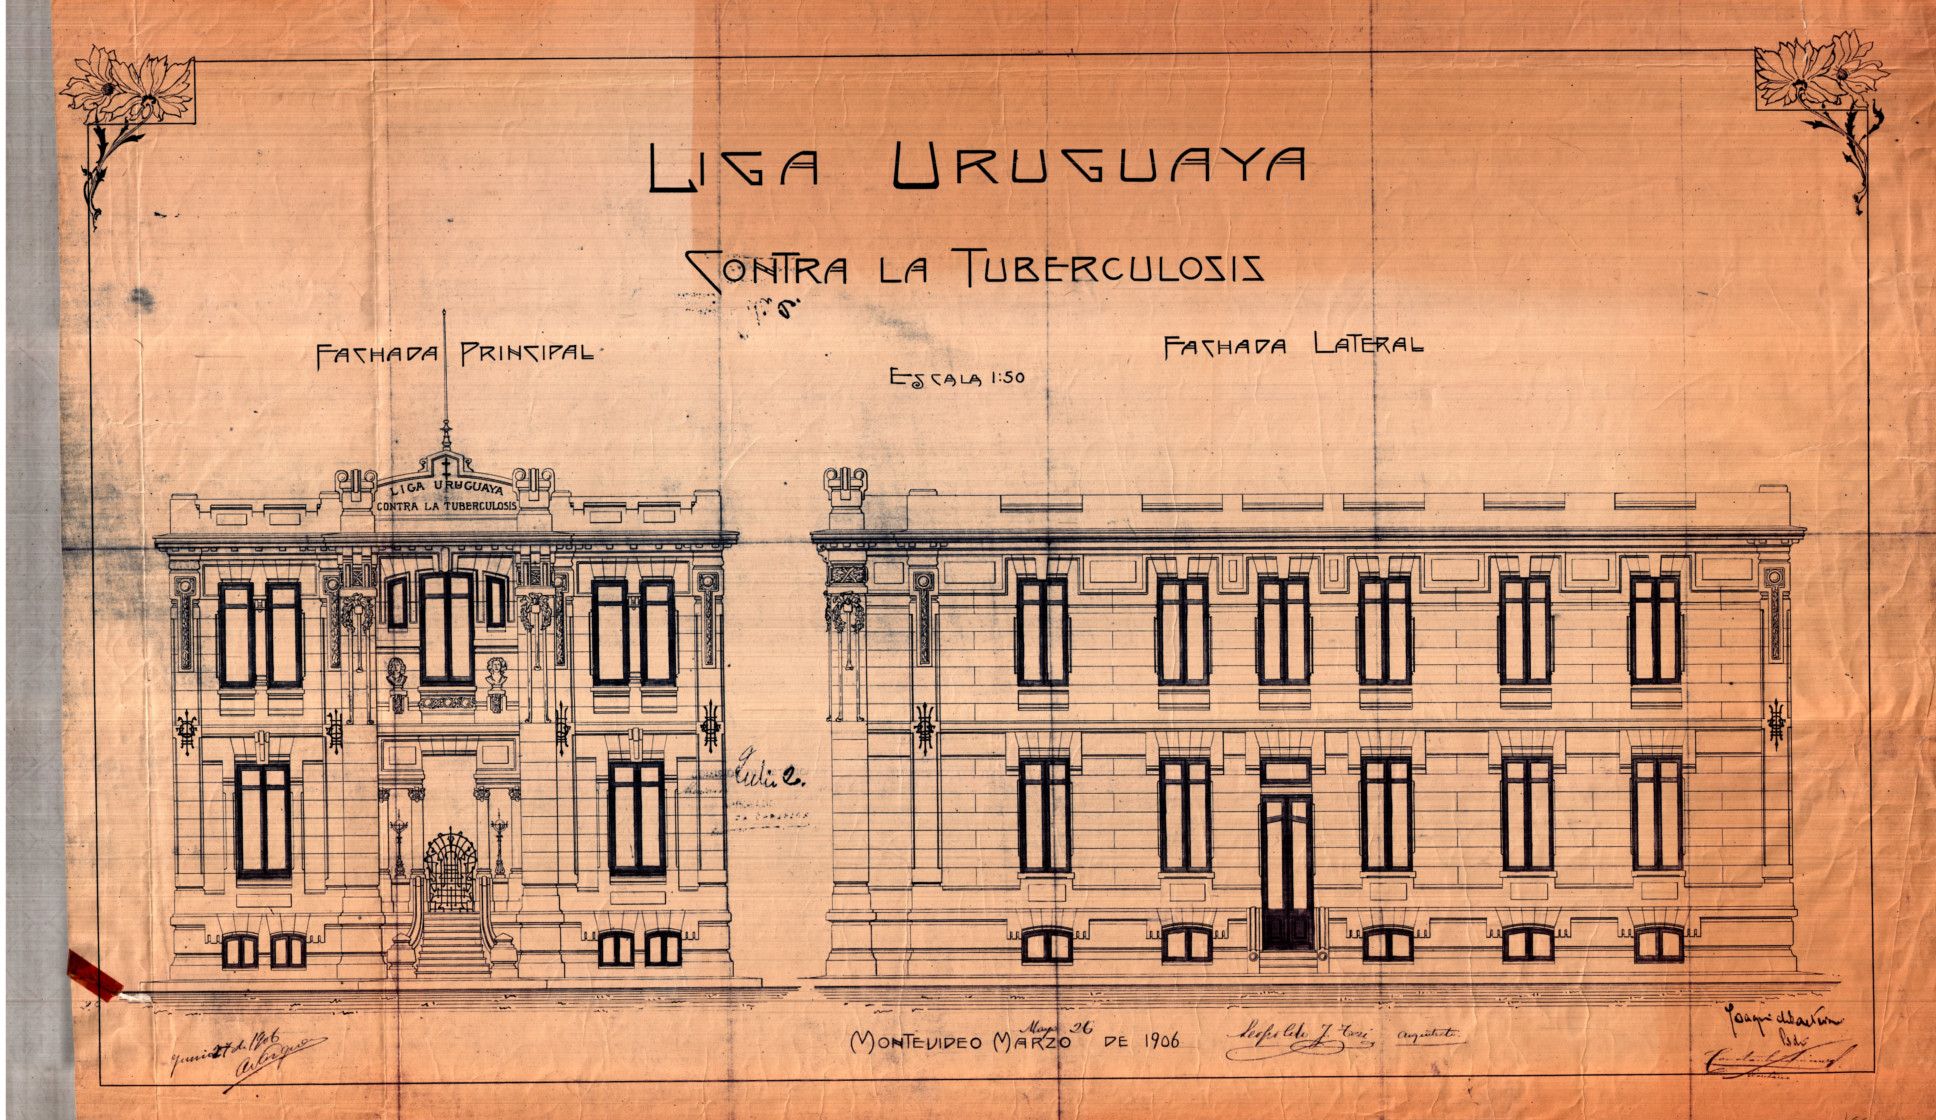 LIGA URUGUAYA
CONTRA LA TUBERCULOSIS
FACHADA PRINCIPAL
FACHADA LATERAL
ESCALA 1:50
LIGA URUGUAYA
CONTRA LA TUBERCULOSIS
Julio 2.
Mayo 26
MONTEVIDEO MARZO DE 1906
Leopoldo J. Tosi arquitecto
Junio 27 de 1906